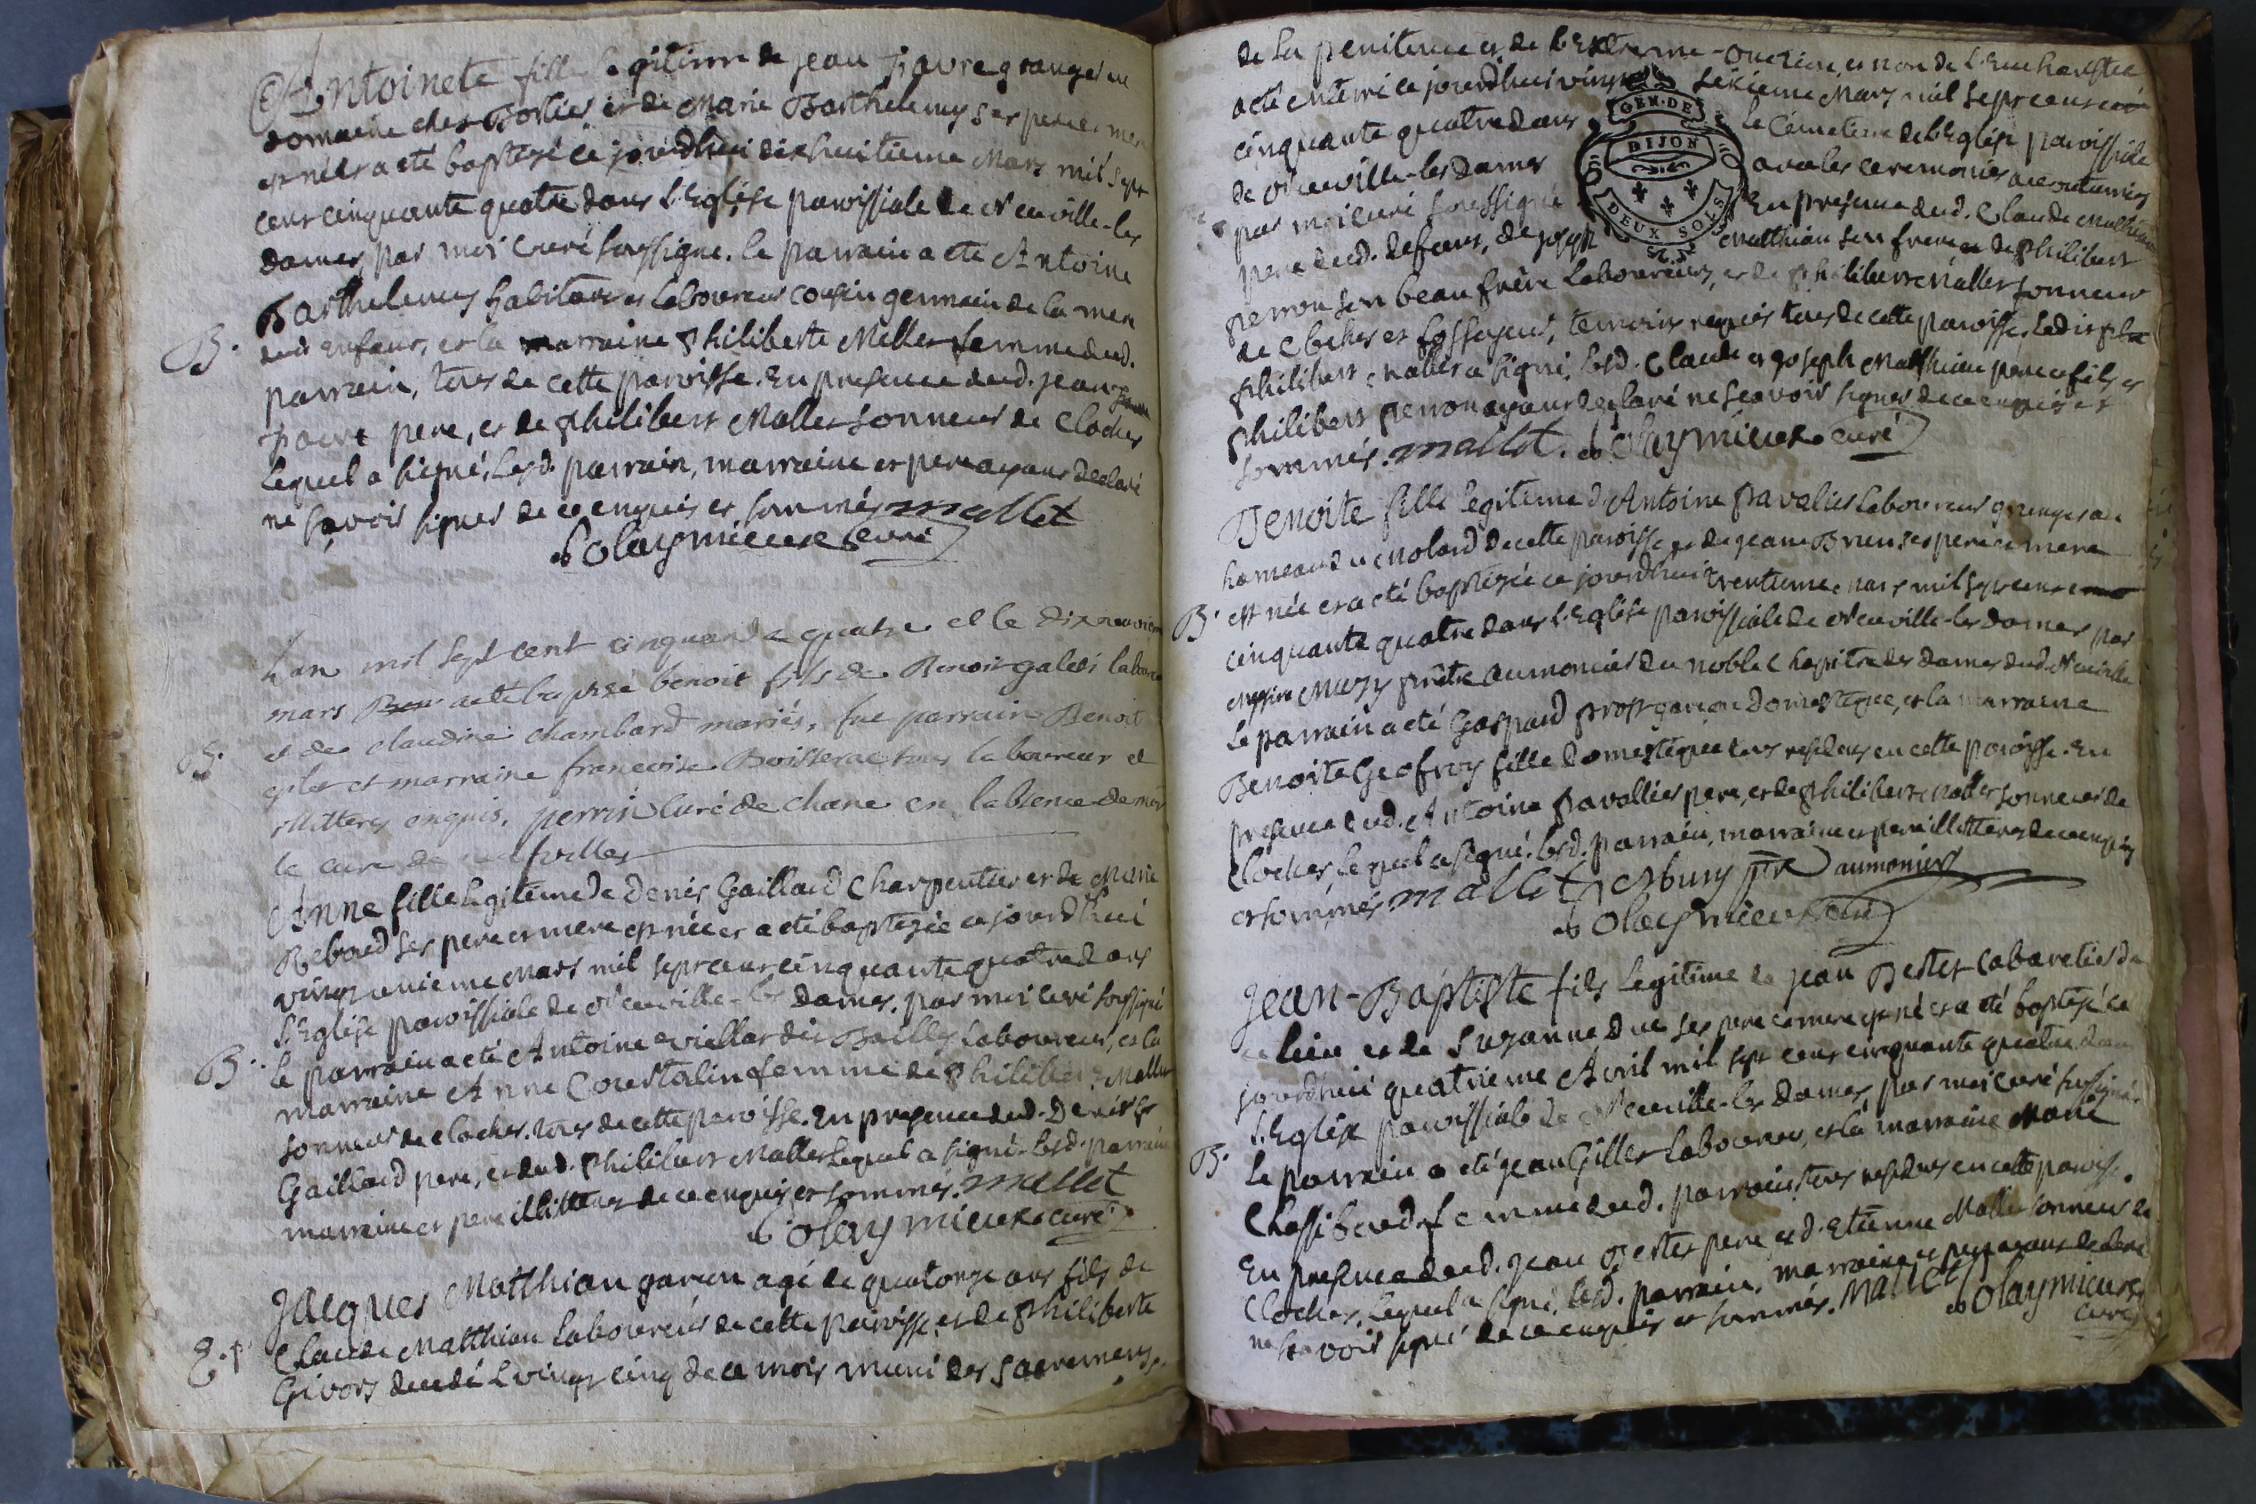 Antoinete fille legitime de jean favre granger au
domaine chez Bottier et de Marie Barthelemy ses pere et mere
est née et a eté baptizé ce jourdhui dixhuitieme Mars mil sept
cent cinquante quatre dans l'Eglise paroissiale de Neuville-les
dames, par moi curé soussigné. le parrain a eté Antoine
Barthelemy habitant et laboureur cousin germain de la mere
dudit enfant, et la marraine philiberte Mallet femme dud.
B.
parrain, tous de cette paroisse. En presence dud. jean
favre pere, et de philibert Mallet sonneur de Cloches
lequel a signé, lesd. parrain, marraine et pere ayant declaré
ne sçavoir signer de ce enquis et sommés mallet
Olaymieux curé
L'an mil sept cent cinquante quatre et le dix neuvieme
mars a eté baptisé benoit fils de Benoit galesi laboureur
et de claudine chambard mariés, fut parrain Benoit
B.
et marraine francoise Boisserat tous laboureur et
illitteres enquis. perrin curé de chane en labsence de mr
le cure de neufvilles
Anne fille legitime de Denis Gaillard Charpentier et de Marie
Reboud ses pere et mere est née et a eté baptizée ce jourdhui
vingt unieme Mars mil sept cent cinquante quatre dans
l'Eglise paroissiale de Neuville-les dames, par moi curé soussigné
B.
le parrain a eté Antoine vieillard dit Bailly laboureur, et la
marraine Anne Courtalin femme de philibert Mallet
sonneur de cloches. tous de cette paroisse. En presence dud. Denis
Gaillard pere, et dud. philibert Mallet lequel a signé. lesd. parrain
marraine et pere illitteres de ce enquis et sommés. mallet
Olaymieux curé
Jacques Matthian garcon agé de quatorze ans fils de
Claude Matthian laboureur de cette paroisse, et de philiberte
E. +
Givors decedé le vingt cinq de ce mois muni des sacremens
de la penitence et de l'Extreme-Onction, et non de l'Eucharistie
a eté enterré ce jourdhui vingt sixieme Mars mil sept cent
GEN. DE
cinquante quatre dans le Cimetiere de l'Eglise paroissiale
DIJON
de Neuville-les dames avec les ceremonies accoutumées
DEUX SOLS
par moi curé soussigné En presence dud. Claude Matthian
pere dud. defunt, de joseph Matthian son frere et de philibert
perron son beau frère laboureurs, et de philibert Mallet sonneur
de Cloches et fossoyeur, temoins requis tous de cette paroisse. Ledit
philibert mallet a signé, lesd. Claude et joseph Matthian pere et fils et
philibert perron ayant declaré ne sçavoir signer de ce enquis et
sommés. mallet. Olaymieux curé
Benoite fille legitime d'Antoine pravalier laboureur granger au
hameau du molard de cette paroisse et de jeane Brun ses pere et mere
B.
est née et a eté baptizée ce jourdhui trentieme mars mil sept cent
cinquante quatre dans l'Eglise paroissiale de Neuville-les dames par
messire Mury prêtre aumonier du noble Chapitre des dames dud. Neuville
le parrain a eté Gaspard prost garcon domestique, et la marraine
Benoite Geofroy fille domestique tous residens en cette paroisse. En
presence dud. Antoine pravallier pere, et de philibert mallet sonneur de
Cloches, lequel a signé. lesd. parrain, marraine et pere illitteres de ce enquis
et sommés mallet Mury ptre aumonier
Olaymieux curé
Jean-Baptiste fils legitime de jean Bester cabaretier de
ce lieu et de Suzanne Duc ses pere et mere est né et a eté baptizé ce
jourdhui quatrieme Avril mil sept cent cinquante quatre dans
l'Eglise paroissiale de Neuville-les dames, par moi curé soussigné
B.
le parrain a eté jean Gillet laboureur, et la marraine Marie
Chassibaud femme dud. parrain, tous residens en cette paroisse.
En presence dud. jean Bester pere, et d'Etienne Mallet sonneur de
Cloches, lequel a signé, lesd. parrain, marraine et pere ayant declaré
ne sçavoir signé de ce enquis et sommés. Mallet Olaymieux
curé